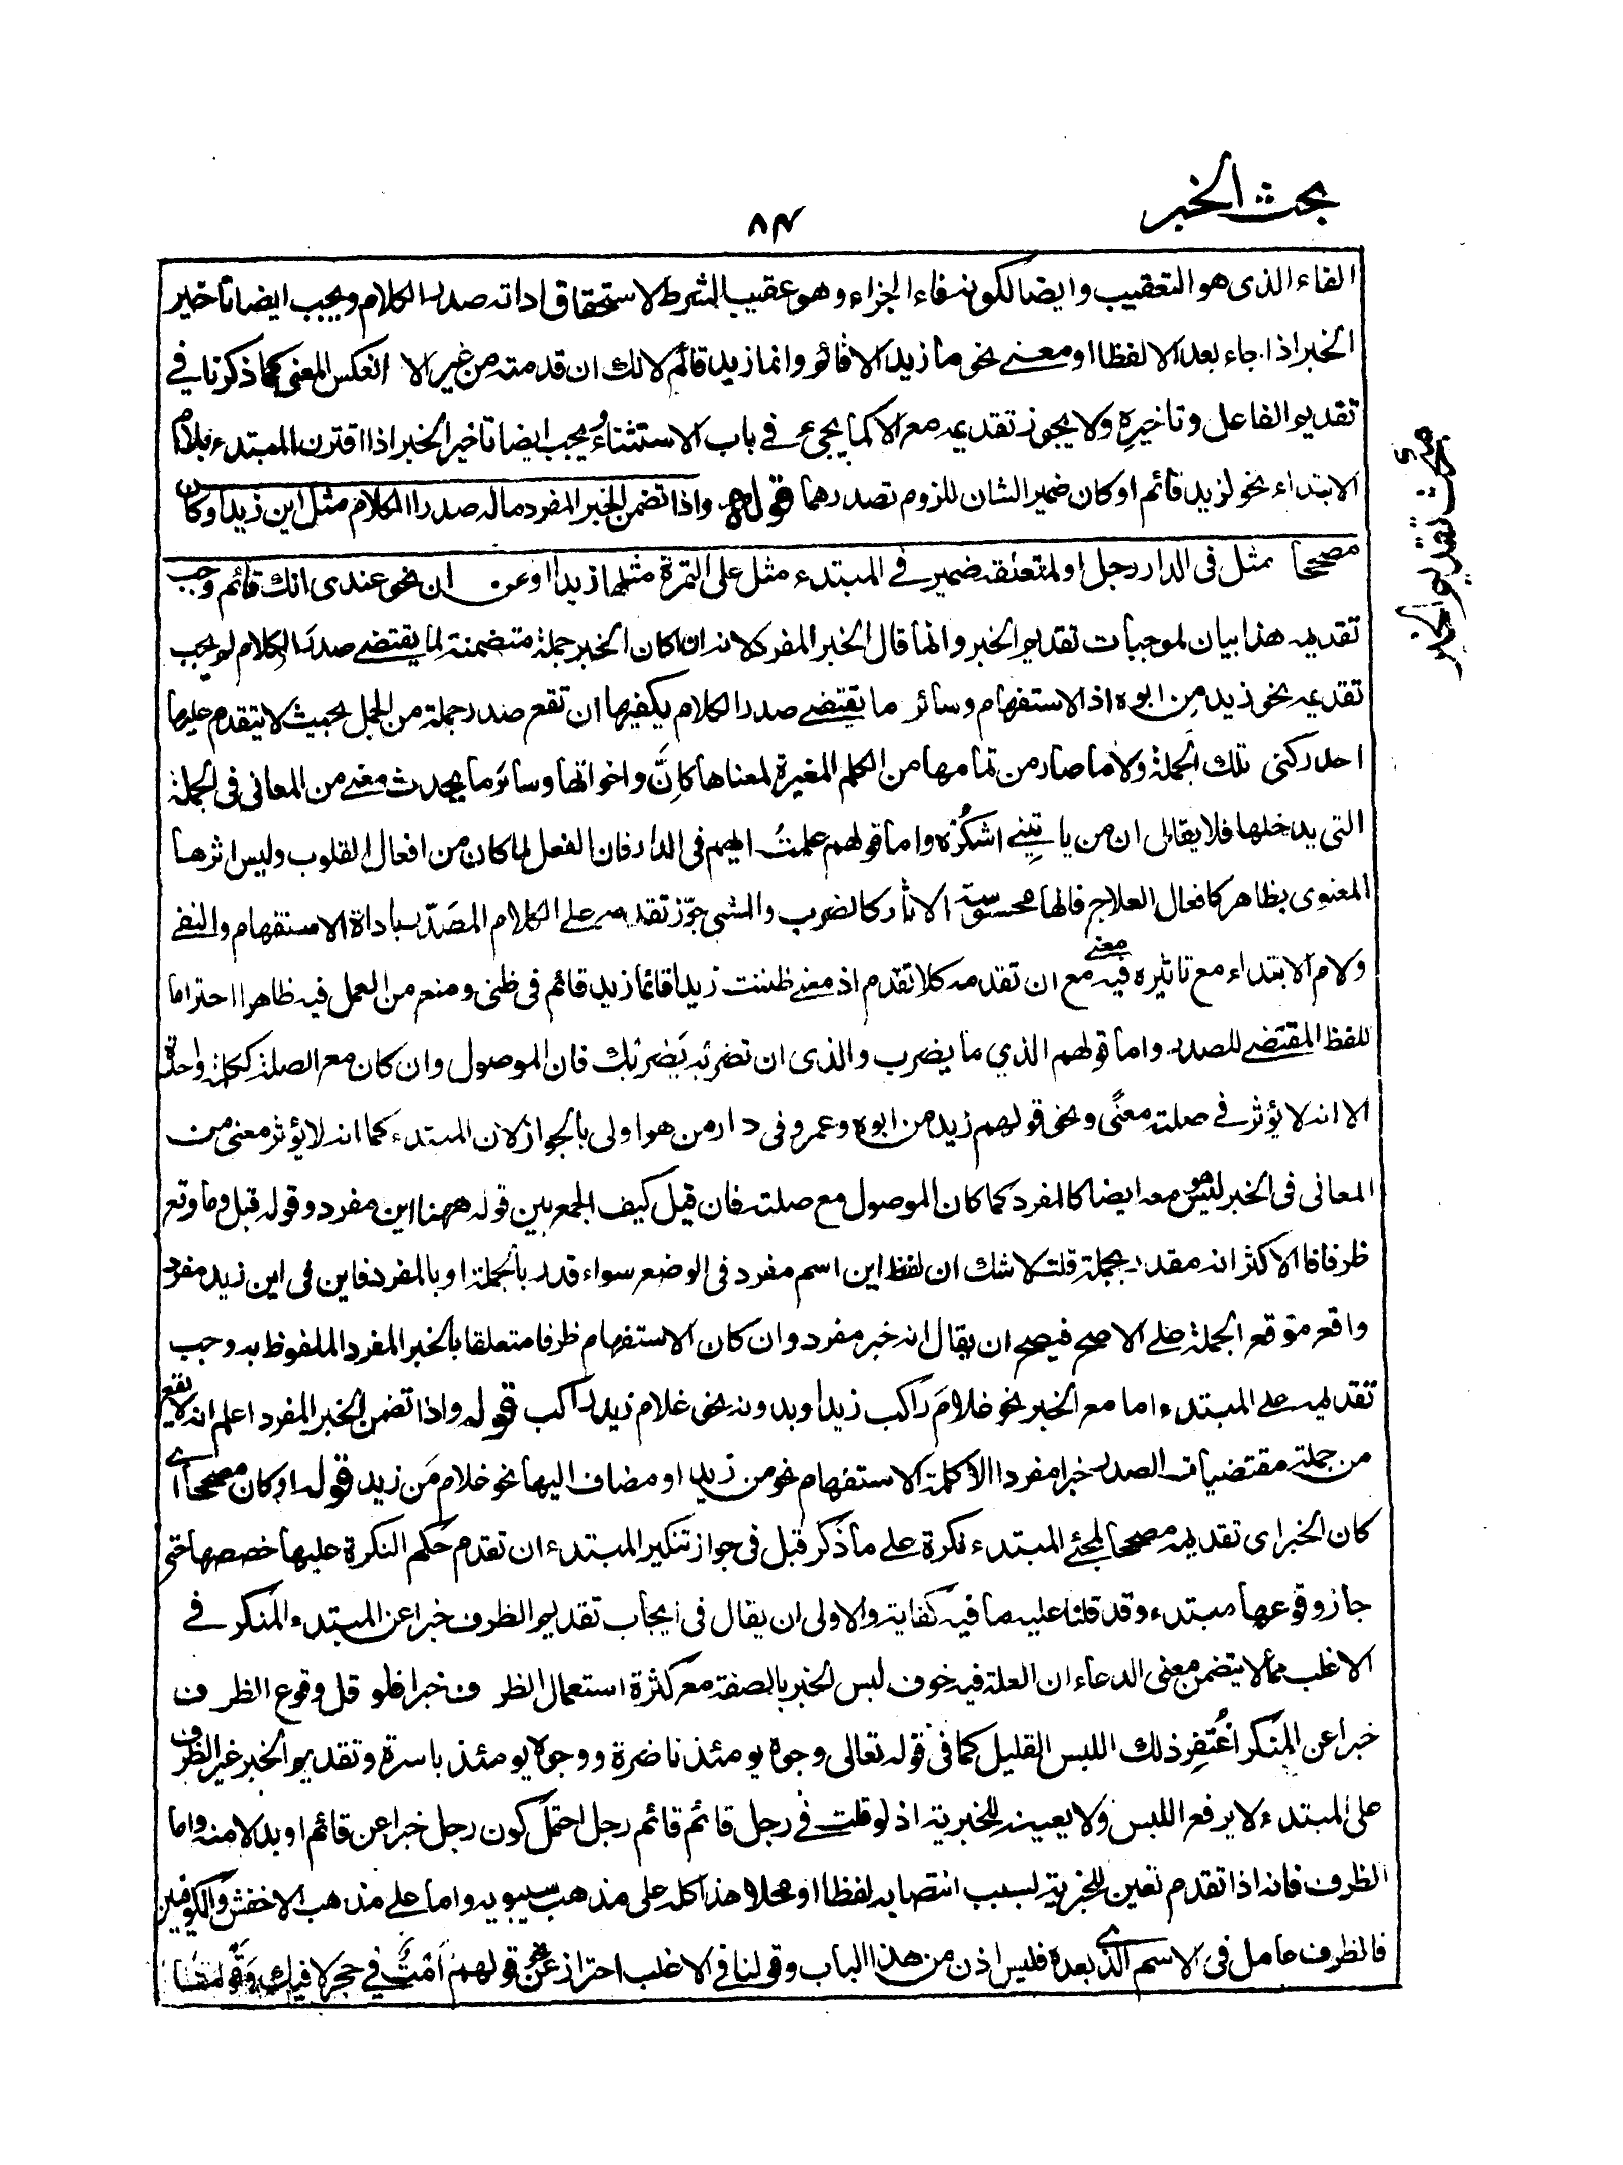 بحث الخبر
٨٤
الفاء الذى هو التعقيب وايضا لكونه فاء الجزاء وهو عقيب الشرط لاستحقاق اداته صدر الكلام ويجب ايضا تاخير
الخبر اذا جاء بعد الا لفظا او معنى نحو ما زيد الا قائم وانما زيد قائم لانك ان قدمته من غير الا انعكس المعنى كما ذكرنا في
تقديم الفاعل وتاخيره ولا يجوز تقديمه مع الا كما يجئ في باب الاستثناء ويجب ايضا تاخير الخبر اذا اقترن المبتدء بلام
الابتداء نحو لزيد قائم او كان ضمير الشان للزوم تصدرهما قوله واذا تضمن الخبر المفرد ماله صدر الكلام مثل اين زيد او كان
مصححا مثل فى الدار رجل او لمتعلقه ضمير في المبتدء مثل على التمرة مثلها زبدا او عن ان نحو عندى انك قائم وجب
تقديمه هذا بيان لموجبات تقديم الخبر وانما قال الخبر المفرد لانه ان كان الخبر جملة متضمنة لما يقتضى صدر الكلام لم يجب
تقديمه نحو زيد من ابوه اذ الاستفهام وسائر ما يقتضى صدر الكلام يكفيها ان تقع صدر جملة من الجمل بحيث لا يتقدم عليها
احد ركنى تلك الجملة ولا ما صار من تمامها من الكلم المغيرة لمعناها كانَّ واخواتها وسائر ما يحدث معنى من المعانى فى الجملة
التى يدخلها فلا يقال ان من ياتينى اشكُرْه واما قولهم علمتُ ايهم فى الدار فان الفعل لما كان من افعال القلوب وليس اثرها
المعنوى بظاهر كافعال العلاج فانها محسوسة الاثار كالضرب والمشى جوّز تقديمه على الكلام المصَدّر باداة الاستفهام والنفى
ولام الابتداء مع تاثيره فيه معنى مع ان تقدمه كلا تقدم اذ معنى ظننت زيدا قائما زيد قائم فى ظنى ومنع من العمل فيه ظاهرا احتراما
للفظ المقتضى للصدر واما قولهم الذي ما يضرب والذى ان تضربْه يَضربْك فان الموصول وان كان مع الصلة ككلمة واحدة
الا انه لا يؤثر في صلته معنًى ونحو قولهم زيد من ابوه وعمرو فى دار من هو اولى بالجواز لان المبتدء كما انه لا يؤثر معنى من
المعانى فى الخبر ليس هو معه ايضا كالمفرد كما كان الموصول مع صلته فان قيل كيف الجمع بين قوله ههنا اين مفرد وقوله قبل وما وقع
ظرفا فالاكثر انه مقدر بجملة قلت لا شك ان لفظ اين اسم مفرد فى الوضع سواء قدر بالجملة او بالمفرد فاين فى اين زيد مفرد
واقع موقع الجملة على الاصح فيصح ان يقال انه خبر مفرد وان كان الاستفهام ظرفا متعلقا بالخبر المفرد الملفوظ به وجب
تقديمه على المبتدء اما مع الخبر نحو غلامَ راكب زيد او بدونه نحو غلام زيد راكب قوله واذا تضمن الخبر المفرد اعلم انه لا يقع
من جملة مقتضيات الصدر خبرا مفردا الا كلمة الاستفهام نحو من زيد او مضاف اليها نحو غلام مَن زيد قوله او كان مصححا اى
كان الخبر اى تقديمه مصححا لمجئ المبتدء نكرة على ما ذكر قبل فى جواز تنكير المبتدء ان تقدم حكم النكرة عليها خصصها حتى
جاز وقوعها مبتدء وقد قلنا عليه ما فيه كفاية والاولى ان يقال فى ايجاب تقديم الظرف خبرا عن المبتدء المنكر في
الاغلب مما لا يتضمن معنى الدعاء ان العلة فيه خوف لبس الخبر بالصفة مع كثرة استعمال الظرف خبرا فلو قل وقوع الظرف
خبرا عن المنكر اغتُفِر ذلك اللبس القليل كما فى قوله تعالى وجوه يومئذ ناضرة ووجوه يومئذ باسرة وتقديم الخبر غير الظرف
على المبتدء لا يرفع اللبس ولا يعينه للخبرية اذ لو قلت في رجل قائم قائم رجل احتمل كون رجل خبرا عن قائم او بدلا منه واما
الظرف فانه اذا تقدم تعين للخبرية لسبب انتصابه لفظا او محلا هذا كله على مذهب سيبويه واما على مذهب الاخفش والكوفيين
فالظرف عامل فى الاسم الذى بعده فليس اذن من هذا الباب وقولنا فى الاغلب احتراز عن نحو قولهم اَمْتٌ في حجر لا فيك وقولنا
مبحث تقديم الخبر